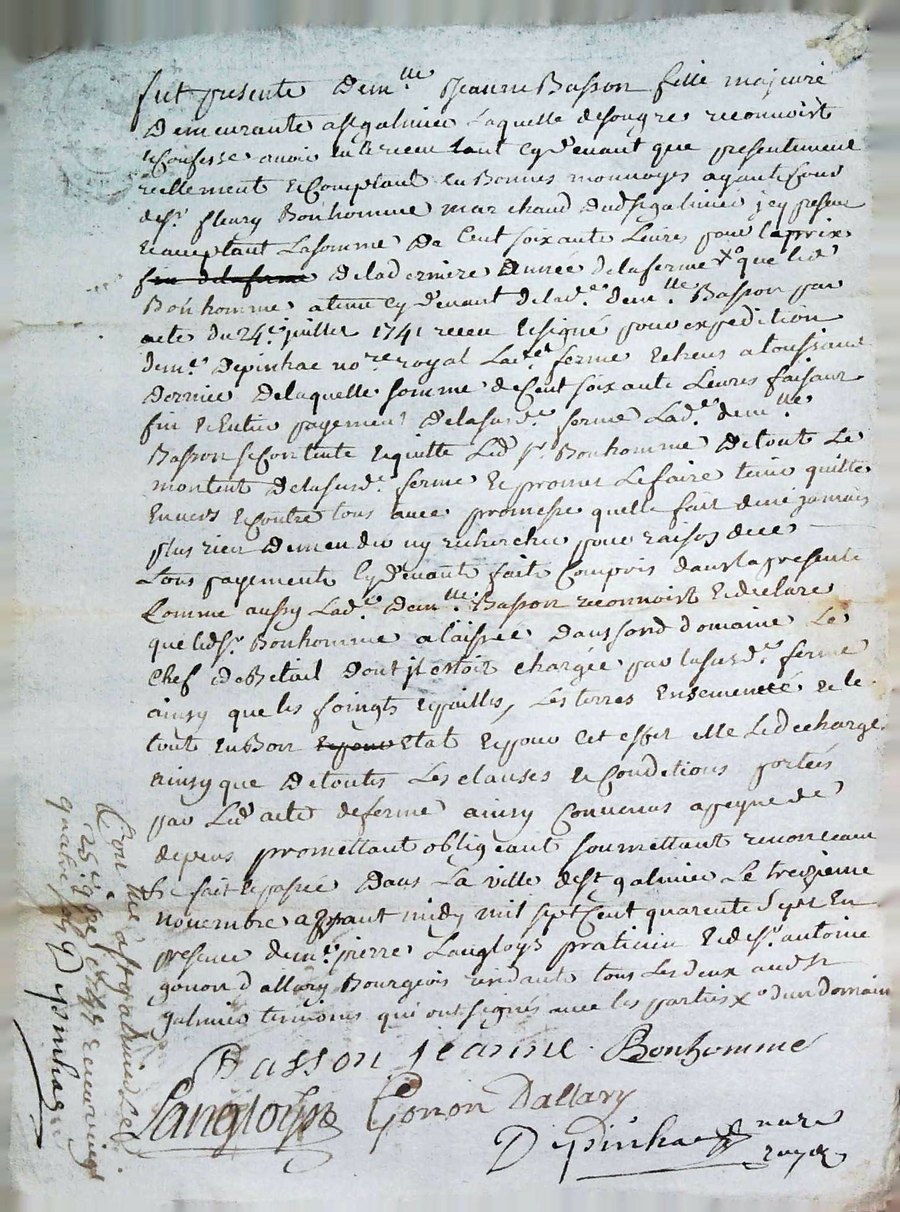 fut presente Dem.lle Jeanne Basson fille majeure
Demeurante a st galmier laquelle de son gre reconnoist
& Confesse avoir eu & receu tant cy devant que presentement
reellement & Comptant en Bonnes monnoyes ayant cous
de sr. fleury Bonhomme marchand dud st galmier jcy present
& acceptant La somme De Cent soixante Livres pour le prix
fin de la ferme De la derniere année De la ferme x° que led
Bonhomme a tenue cy devant de lad.e dem.lle Basson par
acte du 24.e juillet 1741 receu & signé pour expedition
de m.e Depinhac no.re royal Lad.e ferme & cheus a toussaint
Dernier De laquelle somme de Cent soixante Livres faisant
fin & Entier payement De la susd.e ferme Lad.e dem.lle
Basson se Contente & quitte Led sr. Bonhomme De tout Le
montent De la susd.e ferme & promet Le faire tenir quitte
Envers & Contre tous avec promesse quelle fait de ne jamais
plus rien Demender ny rechercher pour raison de ce
tous payements Cy Devant fait Compris dans la presente
Comme aussy Lad.e Dem.lle Basson reconnoist & declare
que led sr. Bonhomme a laissée Dans sond domaine Le
Chef de Betail Dont jl estoit chargée par la susd.e ferme
ainsy que les foingts & pailles, Les terres Ensemencé & le
tout en Bon Etat & pour Cet effet elle Led decharge
ainsy que De toutes Les clauses & Conditions portées
par Led acte de ferme ainsy Convenus a peyne de
depens promettant obligeant soumettant renonceant
& fait & passée Dans La ville de st galmier Le treizieme
novembre appant midy mil sept Cent quarente Sept En
presence de m.e pierre Langloys praticien & de sr. antoine
gonon dallary Bourgeois residants tous Les deux aud st
galmier temoins qui ont signés avec les parties x° dun domaine
Basson jeanne Bonhomme
Langloys Gonon Dallary
Depinhac nore
royal
Con.lle a st galmier Le
25.e 9bre 1747 receu vingt
quatre sols Depinhac